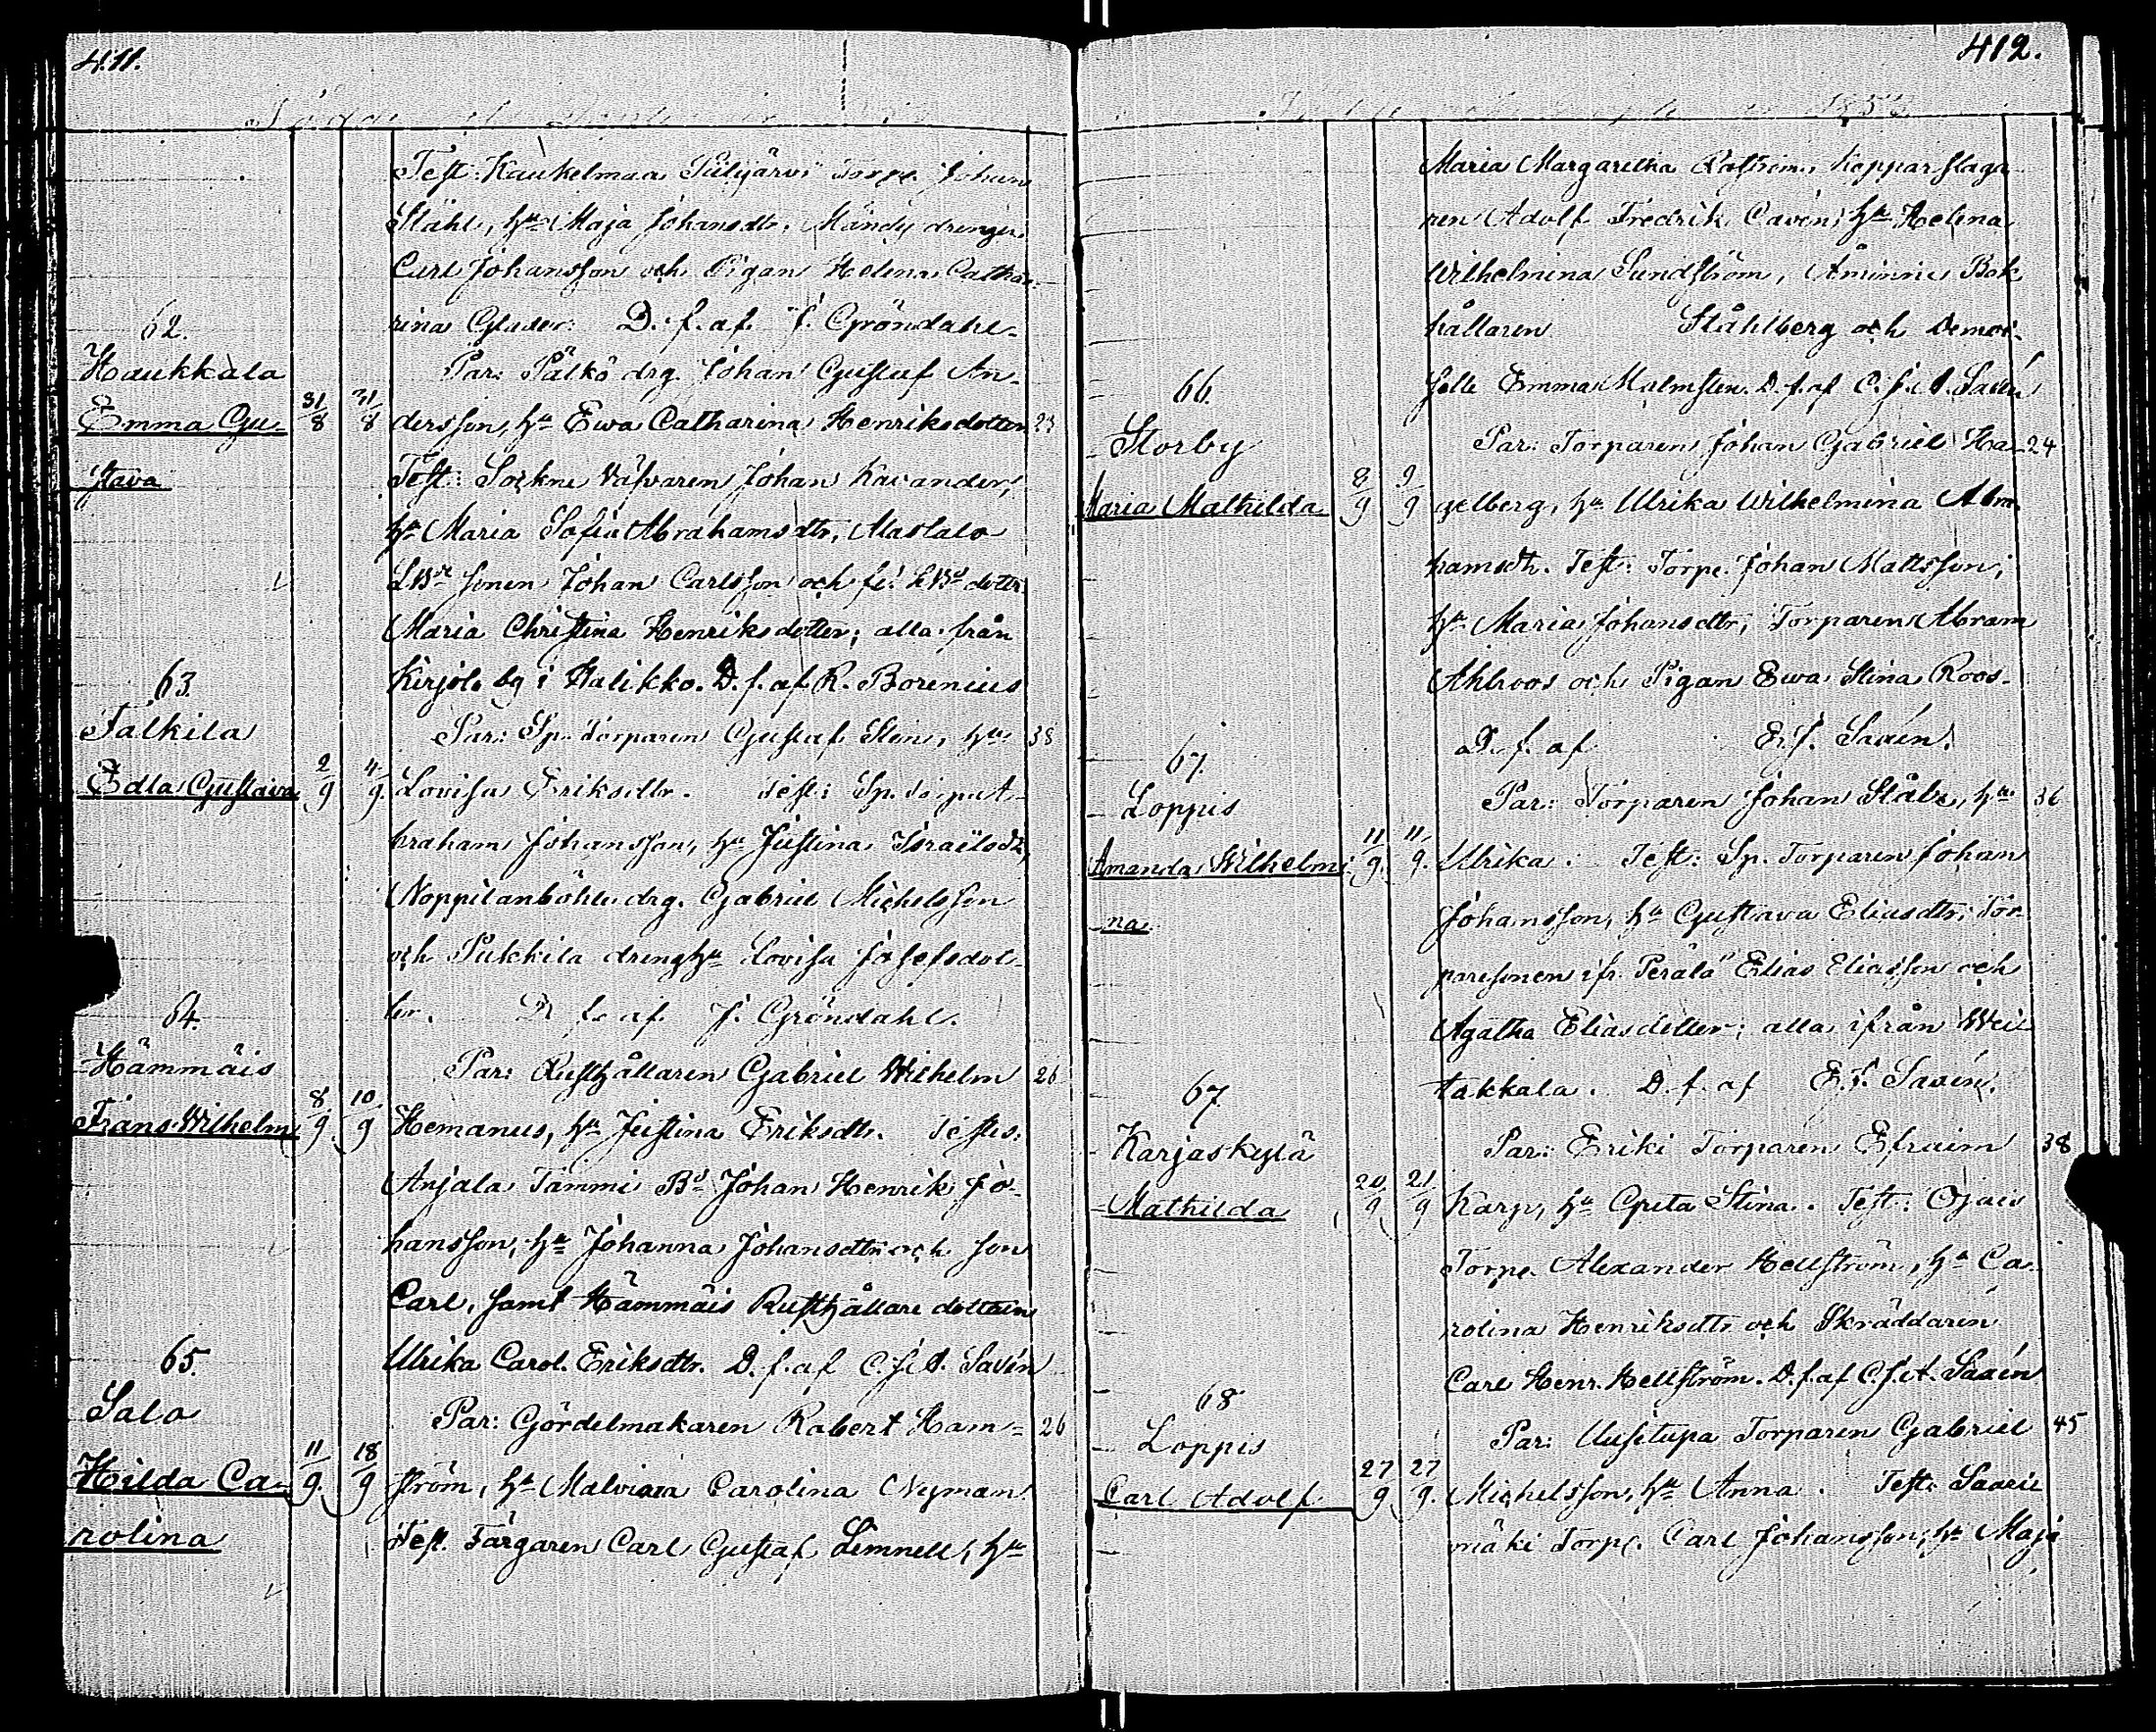 411.
Test: Haukelmaa Pulijärvi Torp. Johan
Ståhl, hu Maja Johansdtr, Mändy drengen
Carl Johansson och Pigan Helena Catha-
rina Glader. D. f. af J. Gröndahl.
62.
Haukkala
Emma Gu-
stava
31/8 31/8
Par: Pälkö drg. Johan Gustaf An-
dersson, hu Ewa Catharina Henriksdotter 23
Test: Sockne Väfvaren Johan Kavander,
hu Maria Sofia Abrahamsdtr,
LBde sonen Johan Carlsson och LBd dottr
Maria Christina Henriksdotter; alla från
Kirjol. by i Halikko. D. f. af R. Borenius
63.
Talkila
Edla Gustava
2/9 4/9
Par: Sp. Torparen Gustaf Sten, hu 38
Lovisa Eriksdtr. Test: Sp. Torpa A-
braham Johansson, hu Justina Israelsdr,
Noppilanböhle drg. Gabriel Michelsson
och Pukkila dreng hu Lovisa Josefsdot-
ter. D. f. af J. Gröndahl.
64.
Hämmäis
Frans Wilhelm
8/9 10/9
Par: Rusthållaren Gabriel Wilhelm 26
Hemanus, hu Justina Eriksdtr. Testes:
Anjala Tammi Bd Johan Henrik Jo-
hansson, hu Johanna Johansdtr och son
Carl, samt Hämmäis Rusthållare dottern
Ulrika Carol. Eriksdtr. D. f. af C. J. A. Savén
65.
Salo
Hilda Ca-
rolina
11/9. 18/9
Par: Gördelmakaren Robert Ham- 26
ström, hu Malviara Carolina Nyman
Test. Färgaren Carl Gustaf Limnell, hu
412.
Maria Margaretha Rosström, kopparslaga
ren Adolf Fredrik Cavén, hu Helena
Wilhelmina Sundström, Åminne Bok
hållaren Ståhlberg och Demoi-
selle Emma Malmsten. D. f. af C. J. A. Savén
66.
Storby
Maria Mathilda
8/9 9/9
Par: Torparen Johan Gabriel Ha- 24
gelberg, hu Ulrika Wilhelmina Abra
hamsdtr. Test: Torp. Johan Mattsson,
hu Maria Johansdtr; Torparen Abram
Ahlroos och Pigan Ewa Stina Roos-
D. f. af E. J. Savén.
67.
Loppis
Amanda Wilhelmi
na
11/9. 11/9.
Par: Torparen Johan Ståle, hu 36
Ulrika. Test: Sp. Torparen Johan
Johansson, hu Gustava Eliasdtr; Tor-
paresonen ifr. Perälä Elias Eliasson och
Agatha Eliasdotter; alla ifrån Wei
takkala. D. f. af E. J. Savén.
67.
Karjaskylä
Mathilda
20/9 21/9
Par: Eriki Torparen Efraim 38
Karp, hu Greta Stina. Test: Ojais
Torpe. Alexander Hellström, hu Ca-
rolina Henriksdtr och Skräddaren
Carl Henr. Hellström. D. f. af C. J. A. Savén
68
Loppis
Carl Adolf
27/9 27/9.
Par: Uusitupa Torparen Gabriel 45
Michelsson, hu Anna. Test: Saari
mäki Torp. Carl Johansson, hu Maja